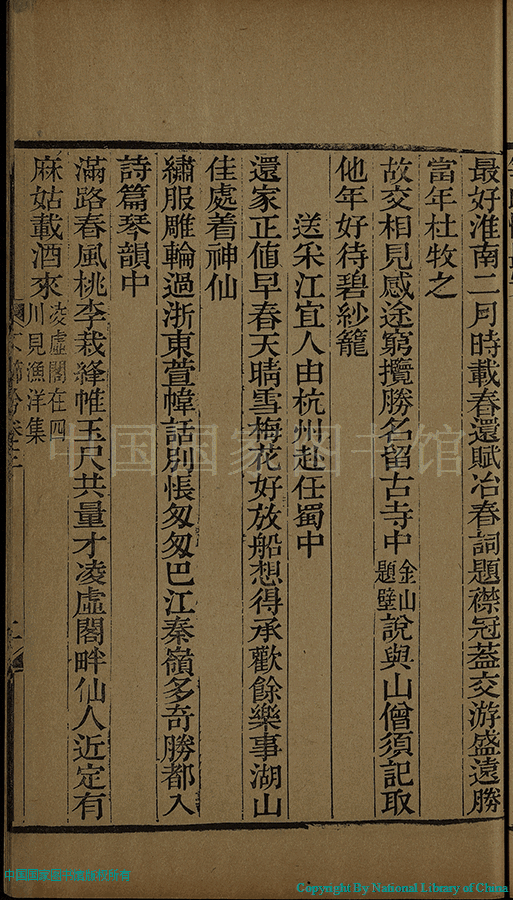 最好淮南二月時載春還賦冶春詞題襟冠蓋交游盛遠勝
當年杜牧之
故交相見感途窮攬勝名留古寺中金山題壁說與山僧須記取
他年好待碧紗籠
送采江宜人由杭州赴任蜀中
還家正値早春天晴雪梅花好放船想得承歡餘樂事湖山
佳處着神仙
繡服雕輪過浙東萱幃話別悵匆匆巴江秦嶺多奇勝都入
詩篇琴韻中
滿路春風桃李栽絳帷玉尺共量才凌虛閣畔仙人近定有
麻姑載酒來凌虛閣在四川見漁洋集
中国国家图书馆
中国国家图书馆版权所有
Copyright By National Library of China